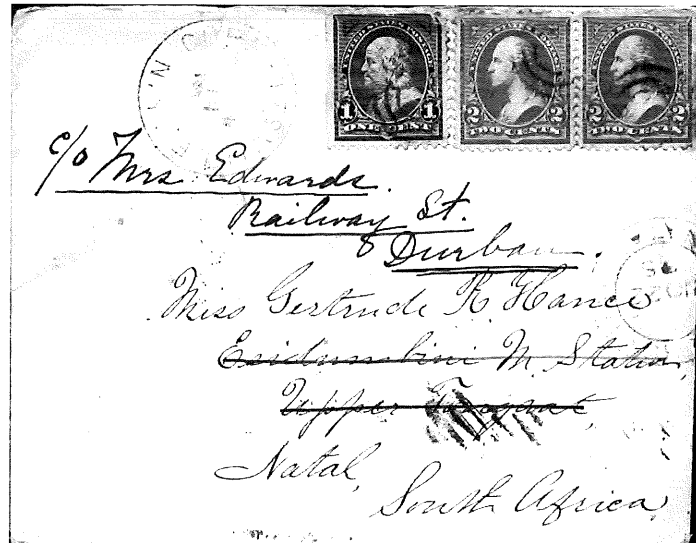 UNITED STATES POSTAGE
1 1
ONE CENT
UNITED STATES POSTAGE
2 2
TWO CENTS
UNITED STATES POSTAGE
2 2
TWO CENTS
c/o Mrs Edwards.
Railway St.
Durban.
Miss Gertrude R Hance
Esidumbini M. Station,
Upper
Natal,
South Africa,